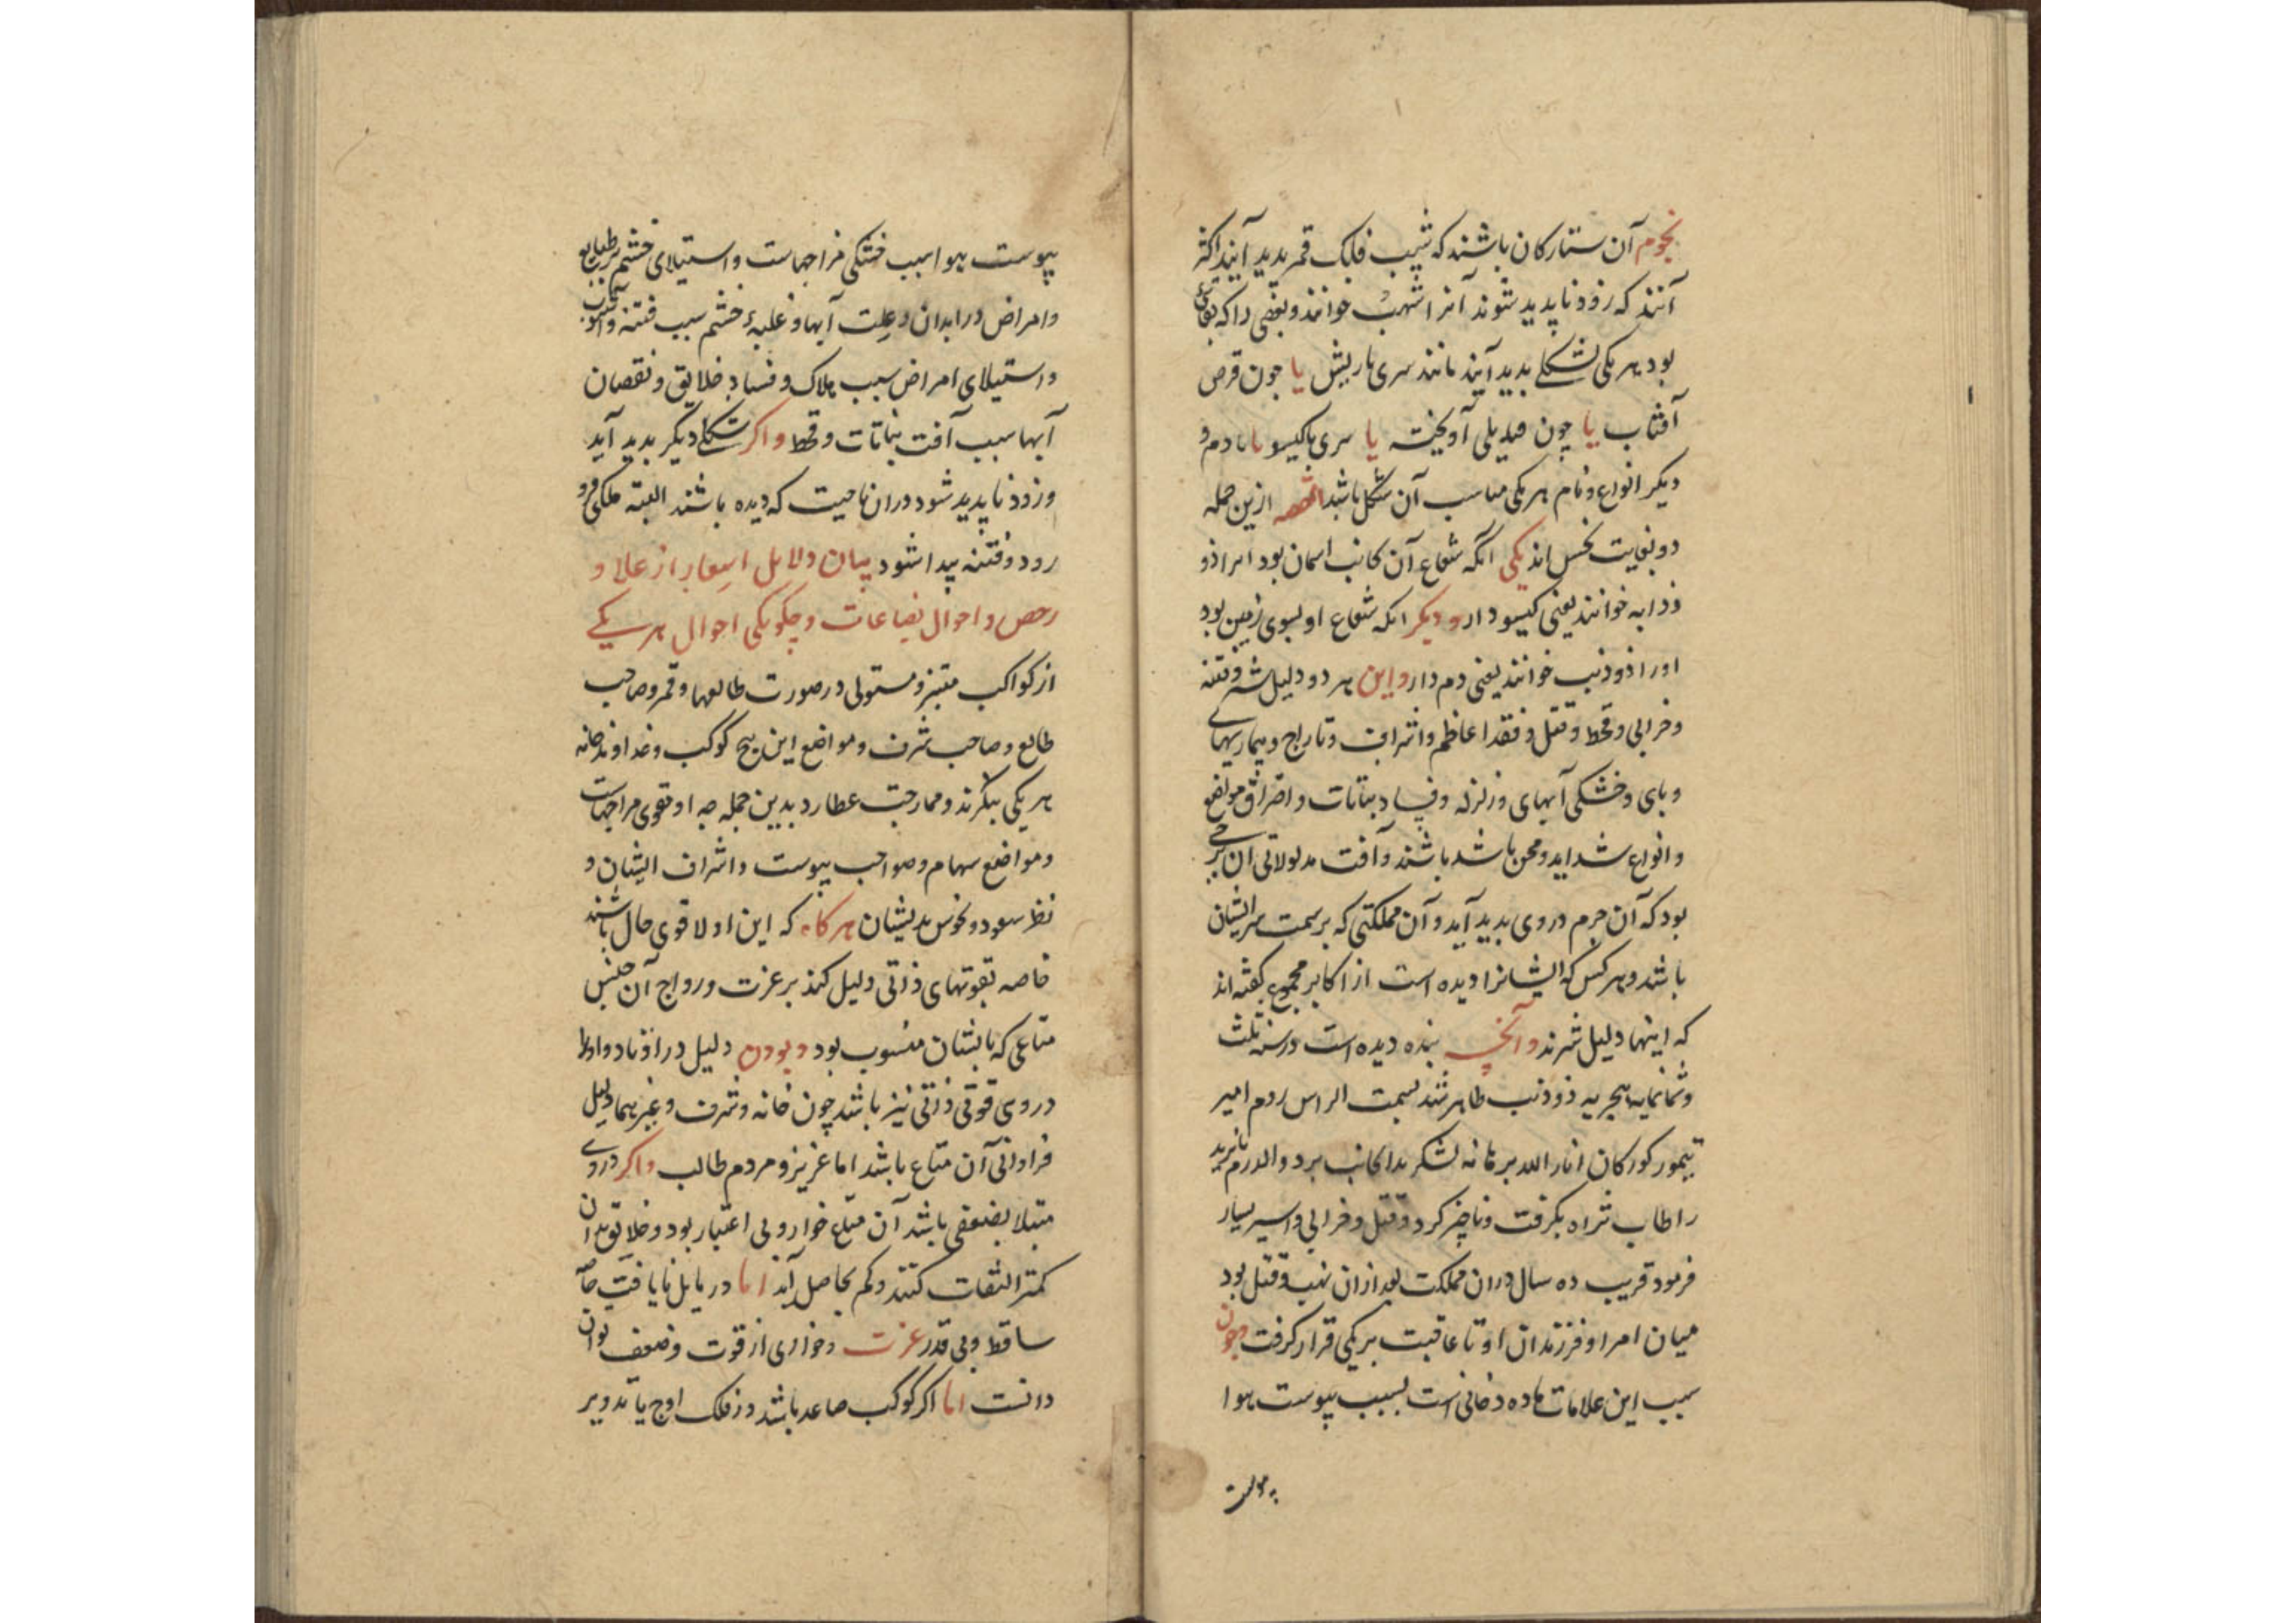 نجوم آن ستارکان باشند که شیب فلک قمر پدید آیند اکثر
آنند که زود ناپدید شوند آنرا شهب خوانند و بعضی را که بقائی
بود هر یکی بشکلی پدید آیند مانند سری با ریش یا چون قرص
آفتاب یا چون قندیلی آویخته یا سری با کیسو یا با دم و
دیکر انواع و نام هر یکی مناسب آن شکل باشد القصه ازین جمله
دو بغایت نحس اند یکی آنکه شعاع آن بجانب اسمان بود انرا ذو
ذوابه خوانند یعنی کیسو دار و دیکر انکه شعاع او بسوی زمین بود
اورا ذو ذنب خوانند یعنی دم دار و این هر دو دلیل شر و فتنه
و خرابی و قحط و قتل و فقد اعاظم و اشراف و تاراج و بیماریهای
وبای و خشکی آبهای و زلزله و فساد نباتات و احتراق مواضع
و انواع شداید و محن باشد باشند و آفت مدلولاتی ان برجی
بود که آن جرم در وی پدید آید و آن مملکتی که بر سمت سر ایشان
باشد و هر کس که ایشانرا دیده است از اکابر مجموع کفته اند
که اینها دلیل شرند و آنچه بنده دیده است در سنه ثلث
و ثمانمایه هجریه ذو ذنب ظاهر شد بسمت الراس روم امیر
تیمور کورکان انار الله برهانه لشکر بدانجانب برد و الدرم بایزید
را طاب ثراه بکرفت و ناچیز کرد و قتل و خرابی و اسیر بسیار
فرمود قریب ده سال دران مملکت بعد ازان نهب و قتل بود
میان امرا و فرزندان او تا عاقبت بر یکی قرار کرفت و چون
سبب این علامات ماده دخانی است بسبب یبوست هوا
یبوست
یبوست هوا سبب خشکی مزاجهاست و استیلای خشم بر طبایع
و امراض در ابدان و علت آبها و غلبهٔ خشم سبب فتنه و آشوب
و استیلای امراض سبب هلاک و فساد خلایق و نقصان
آبها سبب آفت نباتات و قحط و اکر شکلی دیکر پدید آید
و زود ناپدید شود دران ناحیت که دیده باشند البته ملکی فرو
رود و فتنه پیدا شود بیان دلایل اسعار از غالی و
رخص و احوال بضاعات و چکونکی احوال هر یکی
از کواکب مبتز و مستولی در صورت طالعها و قمر و صاحب
طالع و صاحب شرف و مواضع این پنج کوکب و خداوند خانه
هر یکی بنکرند و ممازجت عطارد بدین جمله چه او مقوی مزاجهاست
و مواضع سهام و صواحب بیوت و اشراف ایشان و
نظر سعود و نحوس بدیشان هرکاه که این ادلا قوی حال باشند
خاصه بقوتهای ذاتی دلیل کند بر عزت و رواج آن جنس
متاعی که بایشان منسوب بود و بودن دلیل در اوتاد و اوط
در وی قوتی ذاتی نیز باشد چون خانه و شرف و غیرهما دلیل
فراوانی آن متاع باشد اما عزیز و مردم طالب و اکر در وی
مبتلا بضعفی باشد آن متاع خوار و بی اعتبار بود و خلایق بدان
کمتر التفات کنند و کم بحاصل آید اما در مایل نایافت
ساقط و بی قدر عزت و خواری از قوت و ضعف توان
دانست اما اکر کوکب صاعد باشد در فلک اوج یا تدویر